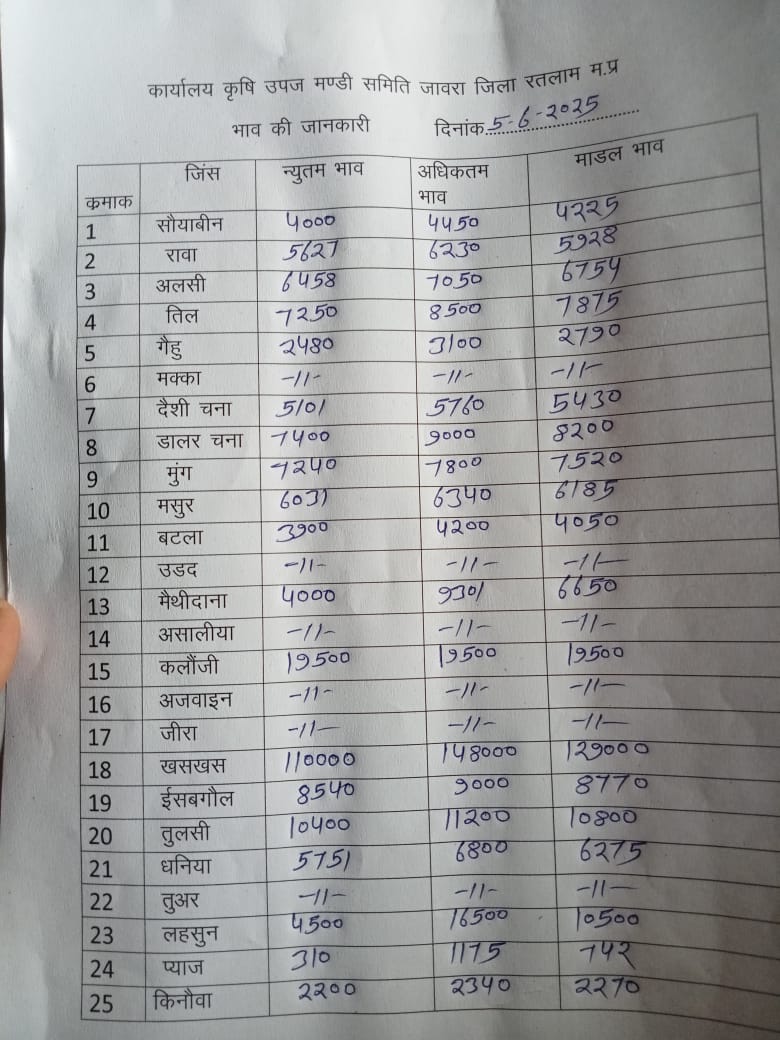 कार्यालय कृषि उपज मण्डी समिति जावरा जिला रतलाम म.प्र
भाव की जानकारी दिनांक 5-6-2025
कमाक जिंस न्युतम भाव अधिकतम भाव माडल भाव
1 सौयाबीन 4000 4450 4225
2 रावा 5627 6230 5928
3 अलसी 6458 7050 6754
4 तिल 7250 8500 7875
5 गैहु 2480 3100 2790
6 मक्का -11- -11- -11-
7 दैशी चना 5101 5760 5430
8 डालर चना 7400 9000 8200
9 मुंग 7240 7800 7520
10 मसुर 6031 6340 6185
11 बटला 3900 4200 4050
12 उडद -11- -11- -11-
13 मैथीदाना 4000 9301 6650
14 असालीया -11- -11- -11-
15 कलौंजी 19500 19500 19500
16 अजवाइन -11- -11- -11-
17 जीरा -11- -11- -11-
18 खसखस 110000 148000 129000
19 ईसबगौल 8540 9000 8770
20 तुलसी 10400 11200 10800
21 धनिया 5751 6800 6275
22 तुअर -11- -11- -11-
23 लहसुन 4500 16500 10500
24 प्याज 310 1175 742
25 किनौवा 2200 2340 2270